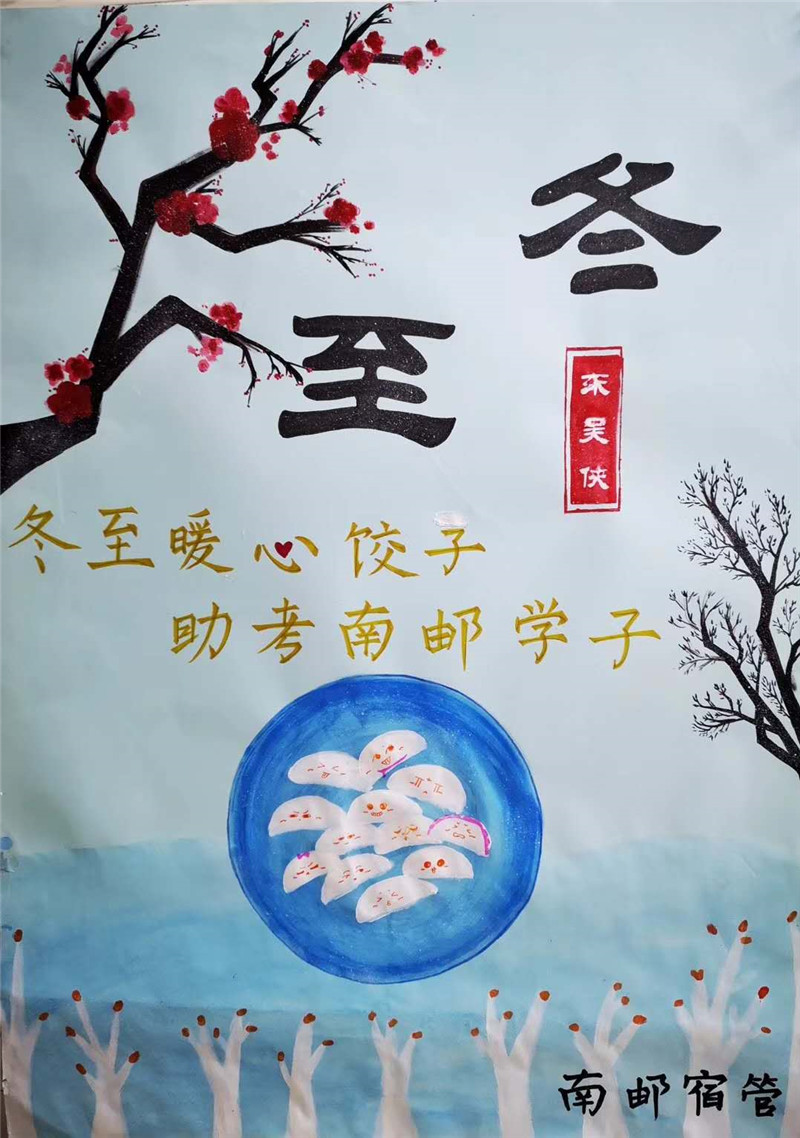 冬至
东吴侠
冬至暖心饺子
助考南邮学子
南邮宿管